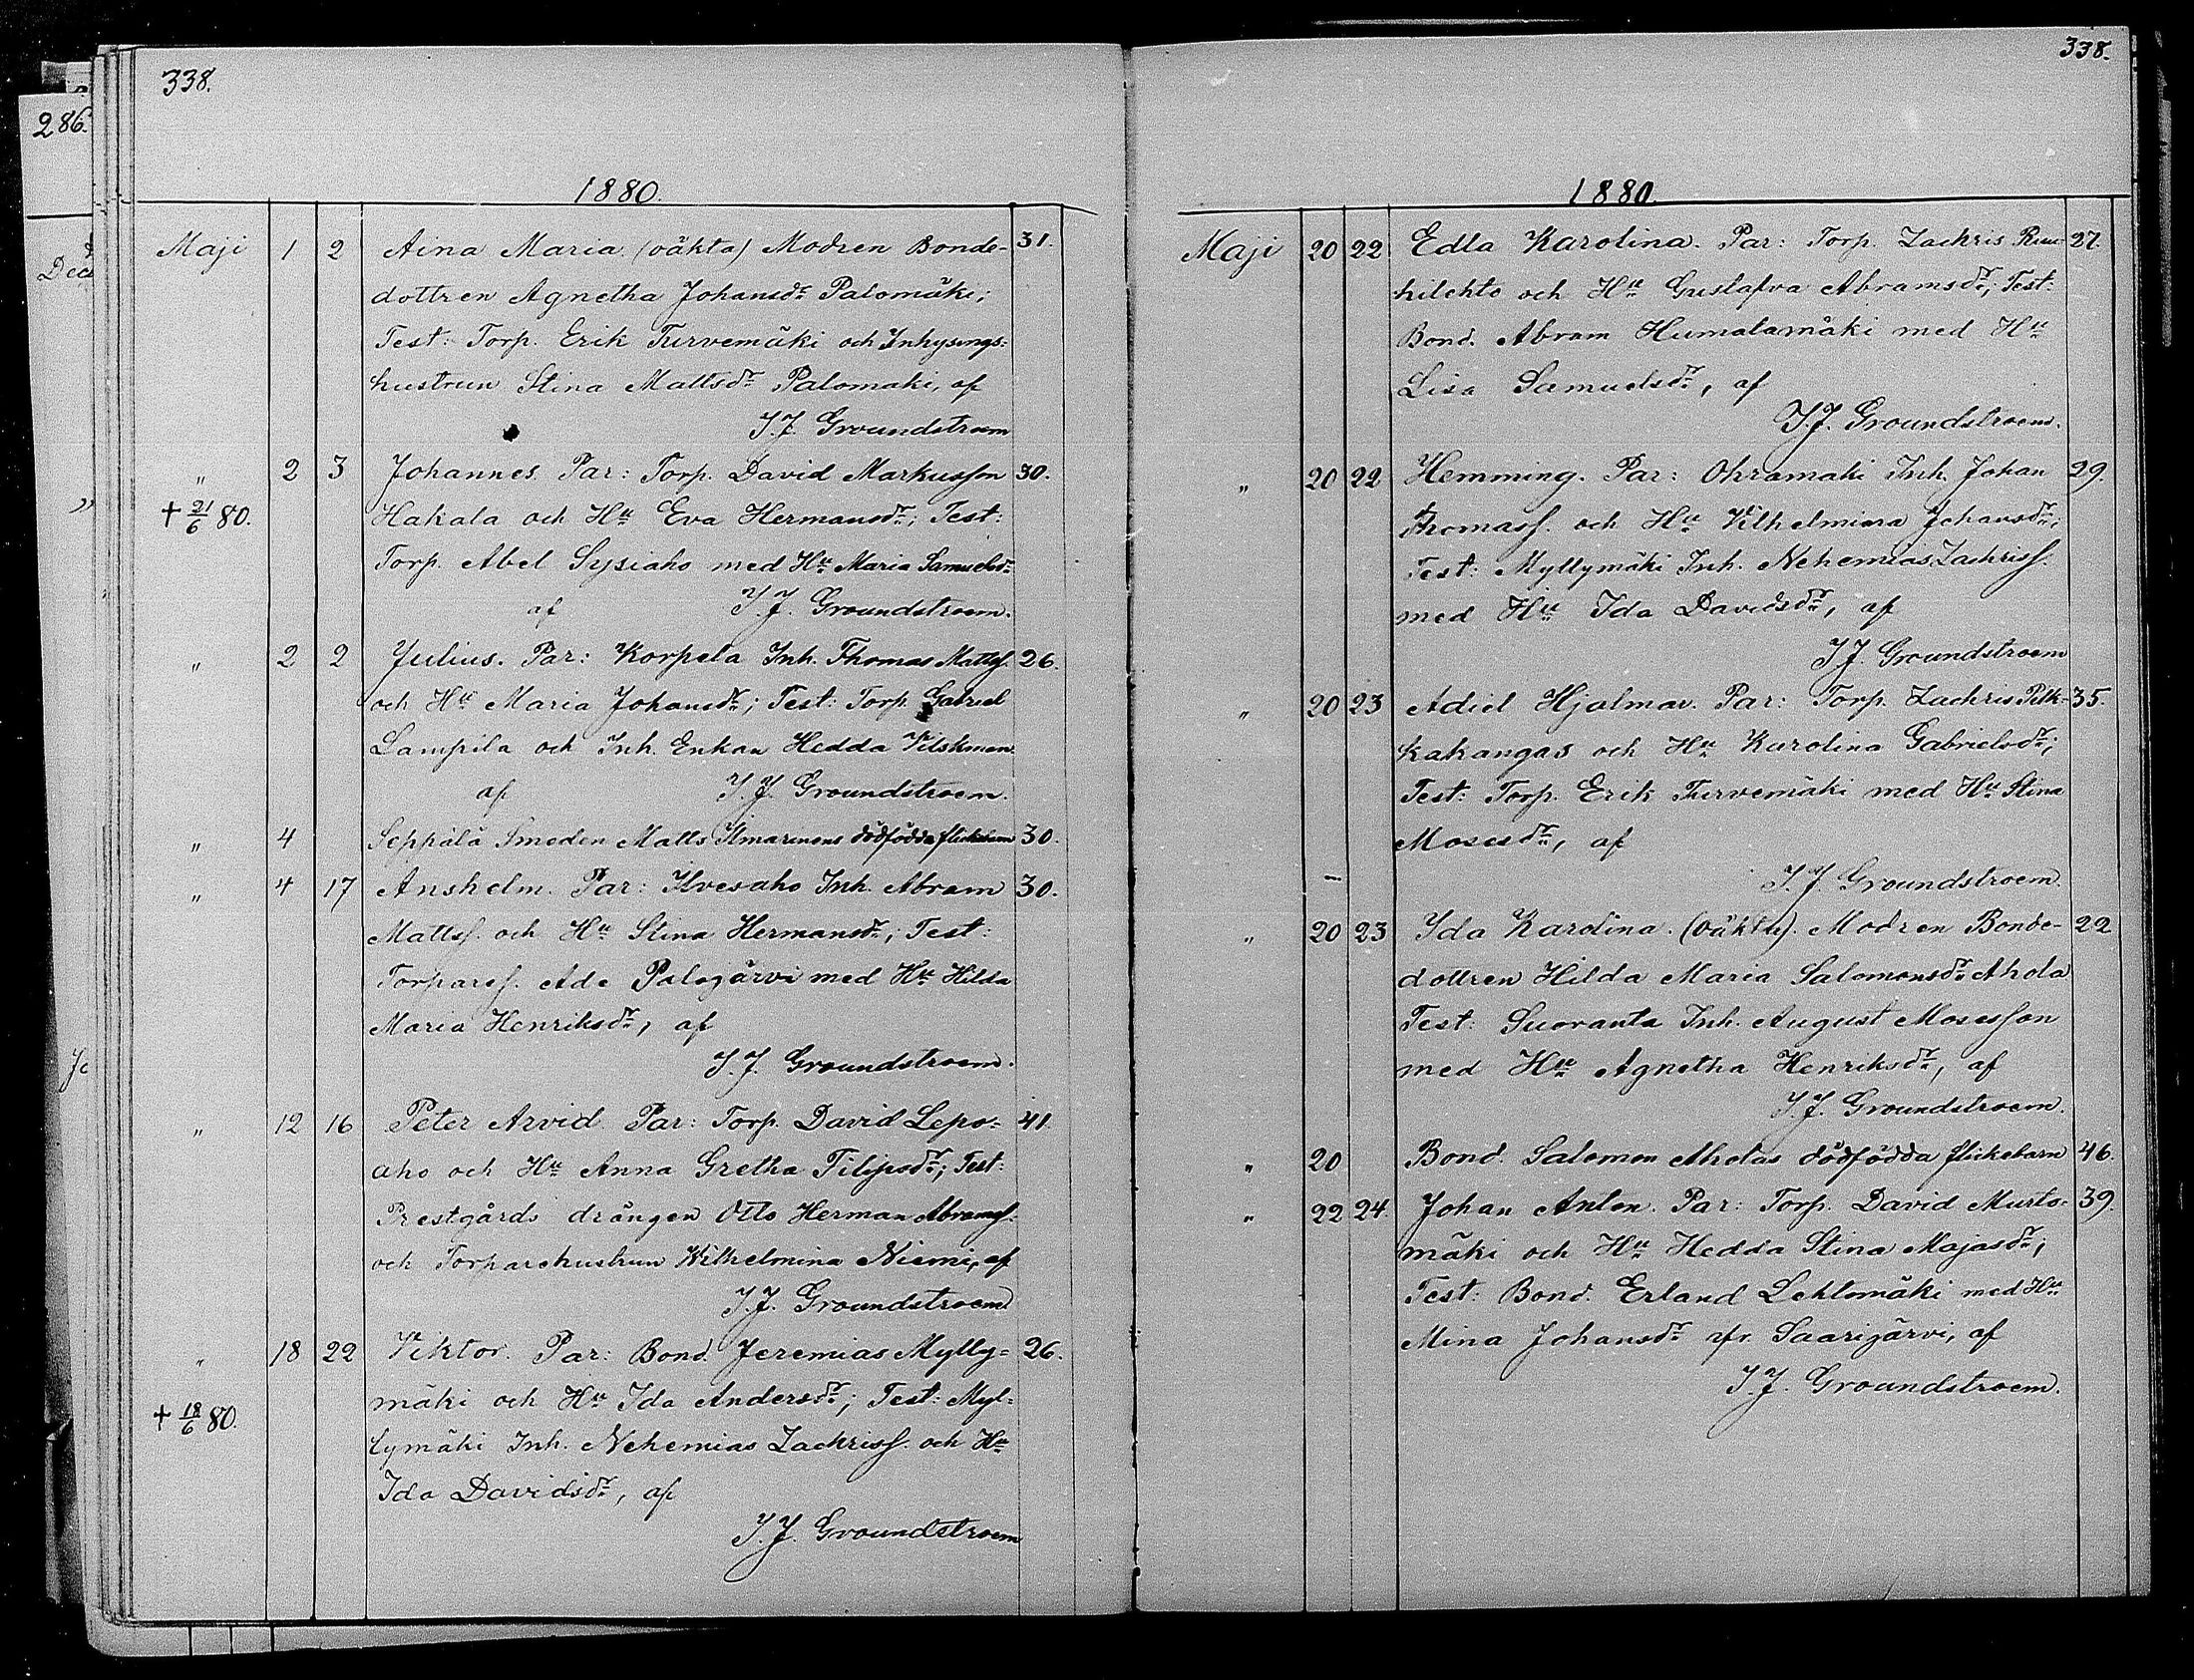 338.
286.
Dec
1880.
Maji 1 2 Aina Maria. (oäkta) Modren Bonde- 31.
dottren Agnetha Johansdr Palomäki;
Test: Torp. Erik Turvemäki och Inhysings-
hustrun Stina Mattsdr Palomaki, af
I.J. Groundstroem
" 2 3 Johannes. Par: Torp. David Markusson 30.
+ 21/6 80. Hakala och Hu Eva Hermansdr; Test:
Torp. Abel Sysiaho med Hu Maria Samuelsdr
af I.J. Groundstroem.
" 2 2 Julius. Par: Korpela Inh. Thomas Mattss. 26.
och Hu Maria Johansdr; Test: Torp. Gabriel
Lampila och Inh. Enkan Hedda Vilskman
af I.J. Groundstroem.
" 4 Seppälä Smeden Matts Ilmarinens dödfödda flickebarn 30.
" 4 17 Anshelm. Par: Ilvesaho Inh. Abram 30.
Mattss. och Hu Stina Hermansdr; Test:
Torpares. Ade Palojärvi med Hu Hilda
Maria Henriksdr, af
I.J. Groundstroem.
" 12 16 Peter Arvid. Par: Torp. David Lepo- 41.
aho och Hu Anna Gretha Filipsdr; Test:
Prestgårds drängen Otto Herman Abramss.
och Torparehustrun Wilhelmina Niemi, af
I.J. Groundstroem
" 18 22 Viktor. Par: Bond. Jeremias Mylly- 26.
mäki och Hu Ida Andersdr; Test: Myl-
+ 18/6 80. lymäki Inh. Nehemias Zackriss. och Hu
Ida Davidsdr, af
I.J. Groundstroem
338.
1880.
Maji 20 22 Edla Karolina. Par: Torp. Zackris Ruu- 27.
hilehto och Hu Gustafva Abramsdr; Test:
Bond. Abram Humalamäki med Hu
Lisa Samuelsdr, af
I.J. Groundstroem.
" 20 22 Hemming. Par: Ohramaki Inh. Johan 29.
Thomass. och Hu Vilhelmina Johansdr;
Test: Myllymäki Inh. Nehemias Zackriss.
med Hu Ida Davidsdr, af
I.J. Groundstroem
" 20 23 Adiel Hjalmar. Par: Torp. Zackris Pilk- 35.
kakangas och Hu Karolina Gabrielsdr;
Test: Torp. Erik Turvemäki med Hu Stina
Mosesdr, af
I.J. Groundstroem.
" 20 23 Ida Karolina. (oäkta). Modren Bonde- 22
dottren Hilda Maria Salomonsdr Ahola
Test: Suoranta Inh. August Mosesson
med Hu Agnetha Henriksdr, af
I.J. Groundstroem.
" 20 Bond. Salomon Aholas dödfödda flickebarn 46.
" 22 24 Johan Anton. Par: Torp. David Murto- 39.
mäki och Hu Hedda Stina Majasdr;
Test: Bond. Erland Lehtomäki med Hu
Mina Johansdr fr. Saarijärvi, af
I.J. Groundstroem.